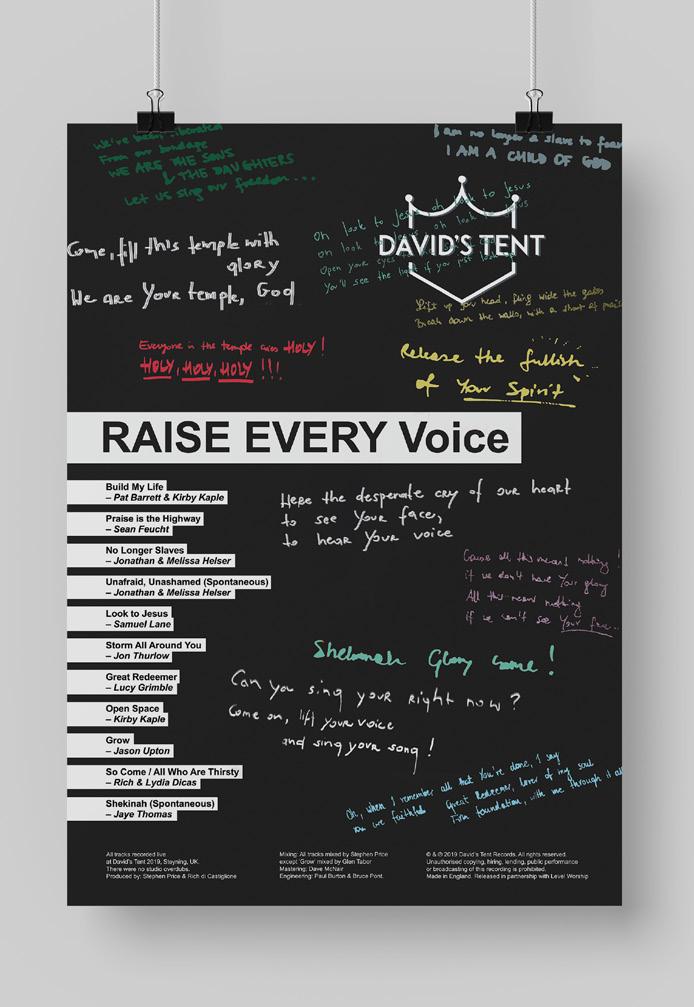 We've been liberated
From our bondage
WE ARE THE SONS
& THE DAUGHTERS
Let us sing our freedom...
I am no longer a slave to fear
I AM A CHILD OF GOD
Come, fill this temple with
glory
We are Your temple, God
Oh look to Jesus oh look to Jesus
Oh look to Jesus oh look to Jesus
Open your eyes
You'll see the light if you just look
DAVID'S TENT
Lift up your head, fling wide the gates
Break down the walls, with a shout of praise
Everyone in the temple cries HOLY!
HOLY, HOLY, HOLY!!!
Release the fullish
of Your Spirit
RAISE EVERY Voice
Build My Life
– Pat Barrett & Kirby Kaple
Praise is the Highway
– Sean Feucht
No Longer Slaves
– Jonathan & Melissa Helser
Unafraid, Unashamed (Spontaneous)
– Jonathan & Melissa Helser
Look to Jesus
– Samuel Lane
Storm All Around You
– Jon Thurlow
Great Redeemer
– Lucy Grimble
Open Space
– Kirby Kaple
Grow
– Jason Upton
So Come / All Who Are Thirsty
– Rich & Lydia Dicas
Shekinah (Spontaneous)
– Jaye Thomas
Here the desperate cry of our heart
to see Your face,
to hear Your voice
Cause all this means nothing!
if we don't have Your glory
All this means nothing
if we can't see Your face...
Shekinah Glory come!
Can you sing your right now?
Come on, lift your voice
and sing your song!
Oh, when I remember all that You're done, I say
You are faithful Great Redeemer, lover of my soul
Firm foundation, with me through it all
All tracks recorded live
at David's Tent 2019, Steyning, UK.
There were no studio overdubs.
Produced by: Stephen Price & Rich di Castiglione
Mixing: All tracks mixed by Stephen Price
except 'Grow' mixed by Glen Tabor
Mastering: Dave McNair
Engineering: Paul Burton & Bruce Pont.
© & ℗ 2019 David's Tent Records. All rights reserved.
Unauthorised copying, hiring, lending, public performance
or broadcasting of this recording is prohibited.
Made in England. Released in partnership with Level Worship